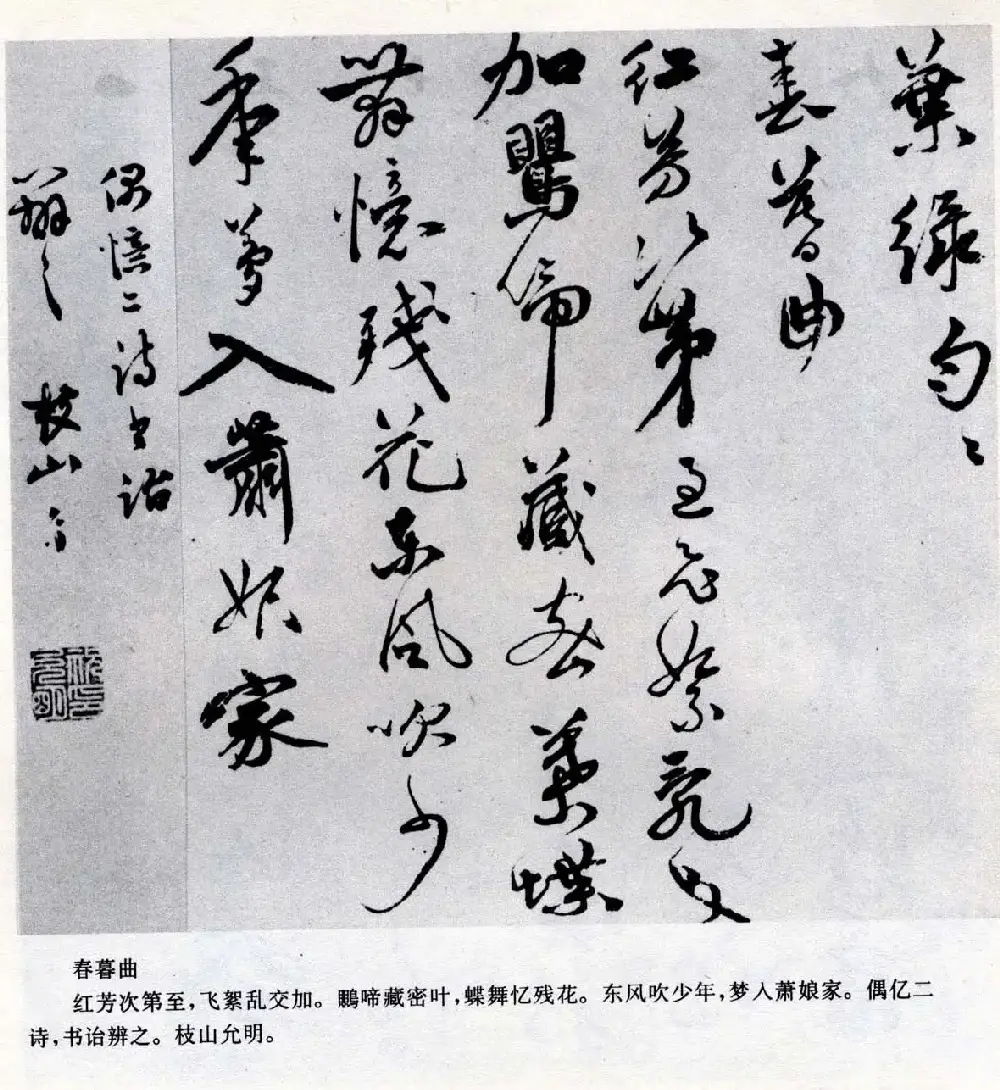 葉緑匀匀
春暮曲
紅芳次第至飛絮亂交
加鸎啼藏密葉蝶
舞憶殘花東風吹少
年夢入蕭娘家
偶憶二詩書詒
辨之 枝山
春暮曲
红芳次第至，飞絮乱交加。鸎啼藏密叶，蝶舞忆残花。东风吹少年，梦人萧娘家。偶亿二
诗，书诒辨之。枝山允明。